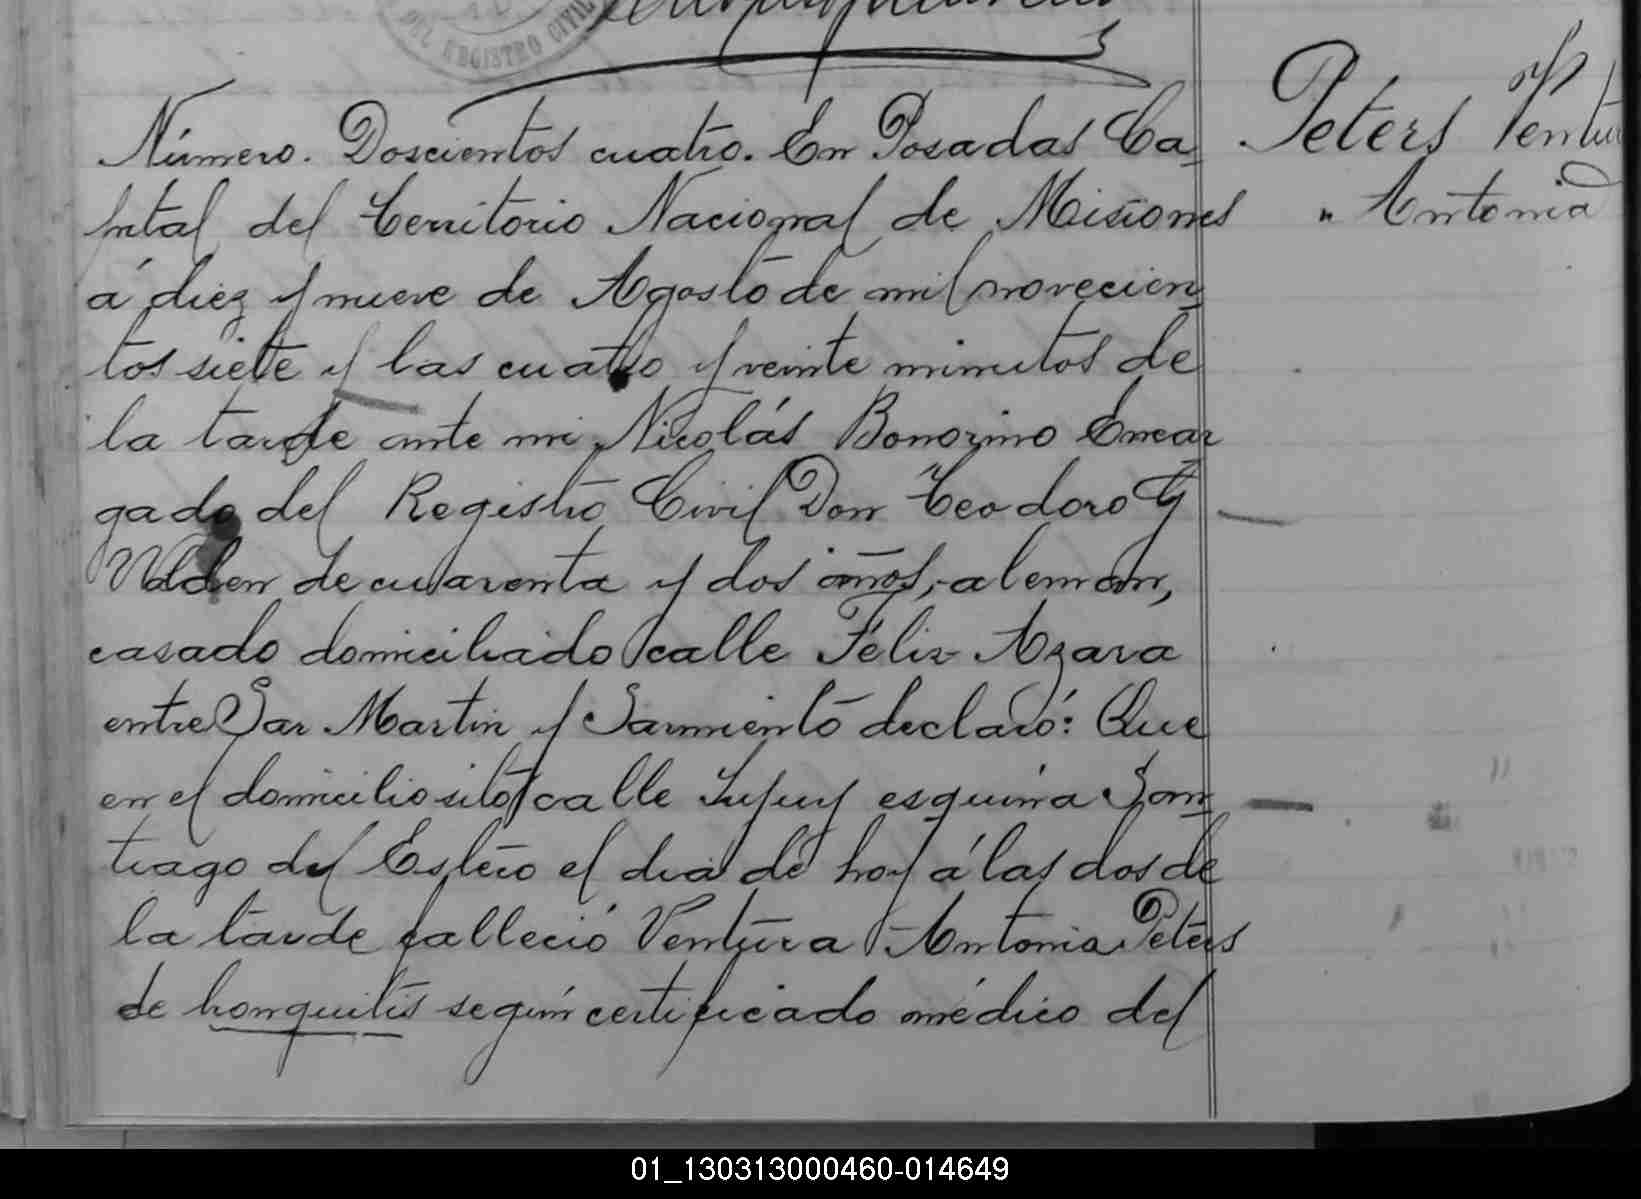 DEL REGISTRO CIVIL
Número. Doscientos cuatro. En Posadas Ca-
pital del Territorio Nacional de Misiones
á diez y nueve de Agosto de mil novecien
tos siete y las cuatro y veinte minutos de
la tarde ante mi, Nicolás Bonozino Encar
gado del Registro Civil Don Teodoro G
de cuarenta y dos años, aleman,
casado domiciliado calle Félix Azara
entre San Martin y Sarmiento declaró: Que
en el domicilio sito calle Jujuy esquina San
tiago del Estero el dia de hoy á las dos de
la tarde falleció Ventura Antonia Peters
de bronquitis según certificado médico del
Peters Ventu
" Antonia
01_130313000460-014649